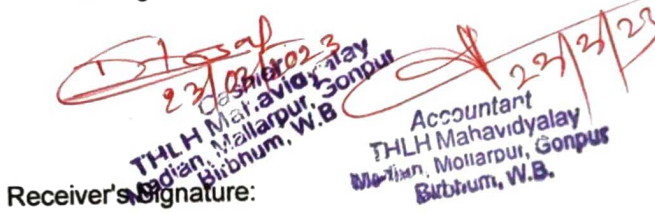 23/03/2023
Cashier
THLH Mahavidyalay
Madian, Mallarpur, Gonpur
Birbhum, W.B
22/3/23
Accountant
THLH Mahavidyalay
Madian, Mollarpur, Gonpur
Birbhum, W.B.
Receiver's Signature: